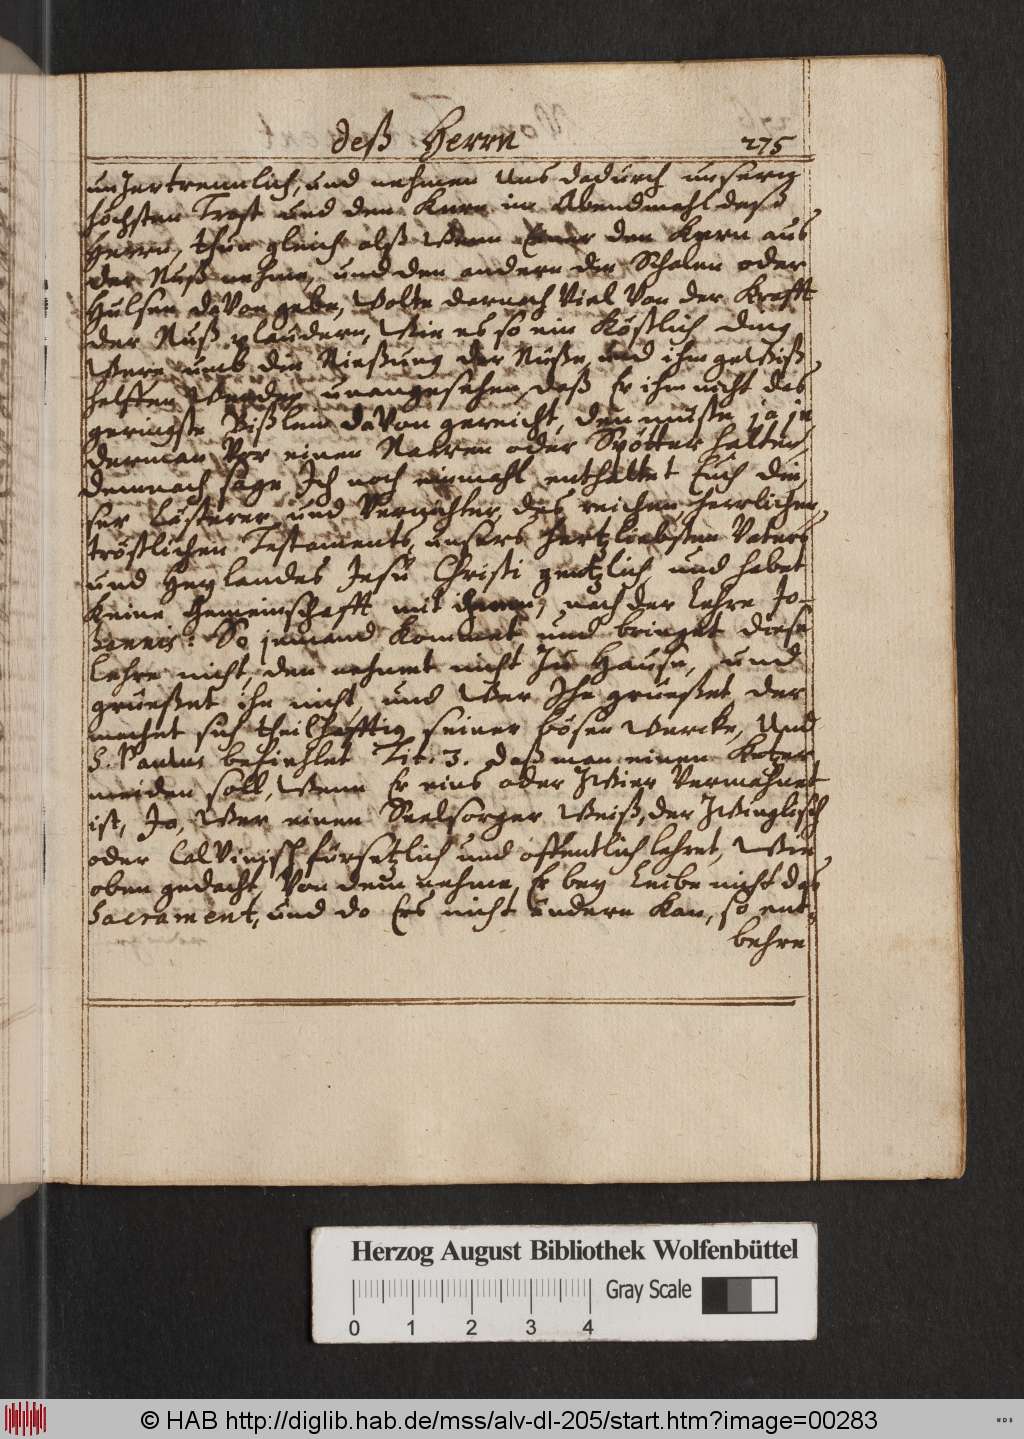 deß Herrn 275
unzertrennlich, und nehmen Uns dadurch unsern
höchsten Trost und den Kern im Abendmahl deß
Herrn, thun gleich alß Wenn Einer den Kern aus
der Nuß nehme, und den andern die Schalen oder
Hülsen daVon gebe, Wolte darnach Viel Von der Krafft
der Nuß plaudern, Wie es so ein Köstlich ding
Were umb die Nießung der Nüße, und ihm gewiß
helffen Werde, unangesehen, daß Er ihm nicht das
geringste Bißlein daVon gereicht, den müste ja je
derman Vor einen Narren oder Spötter halten,
demnach sage Ich noch einmahl enthaltet Euch die
ser Lästerer und Vernichter, des reichen herrlichen
tröstlichen Testaments, unsers hertzliebsten Vaters
und Heylandes Jesu Christi gentzlich, und habet
Keine Gemeinschafft mit ihnen, nach der Lehre Jo-
hannis: So jemand Kommet und bringet diese
Lehre nicht, den nehmet nicht Zu Hause, und
grueßet ihn nicht, und Wer Ihn grueßet, der
machet sich theilhafftig seiner bösen Wercke, Und
S. Paulus befiehlet Tit: 3. daß man einen Ketzer
meiden soll, Wenn Er eins oder Zwier Vermahnet
ist, Jo, Wer einen Seelsorger Weiß, der Zwinglisch
oder CalVinisch fürsetzlich und offentlich lehret, Wie
oben gedacht, Von dem nehme Er bey Leibe nicht das
Sacrament, und do Ers nicht endern Kan, so ent-
behre
Herzog August Bibliothek Wolfenbüttel
Gray Scale
0 1 2 3 4
© HAB http://diglib.hab.de/mss/alv-dl-205/start.htm?image=00283